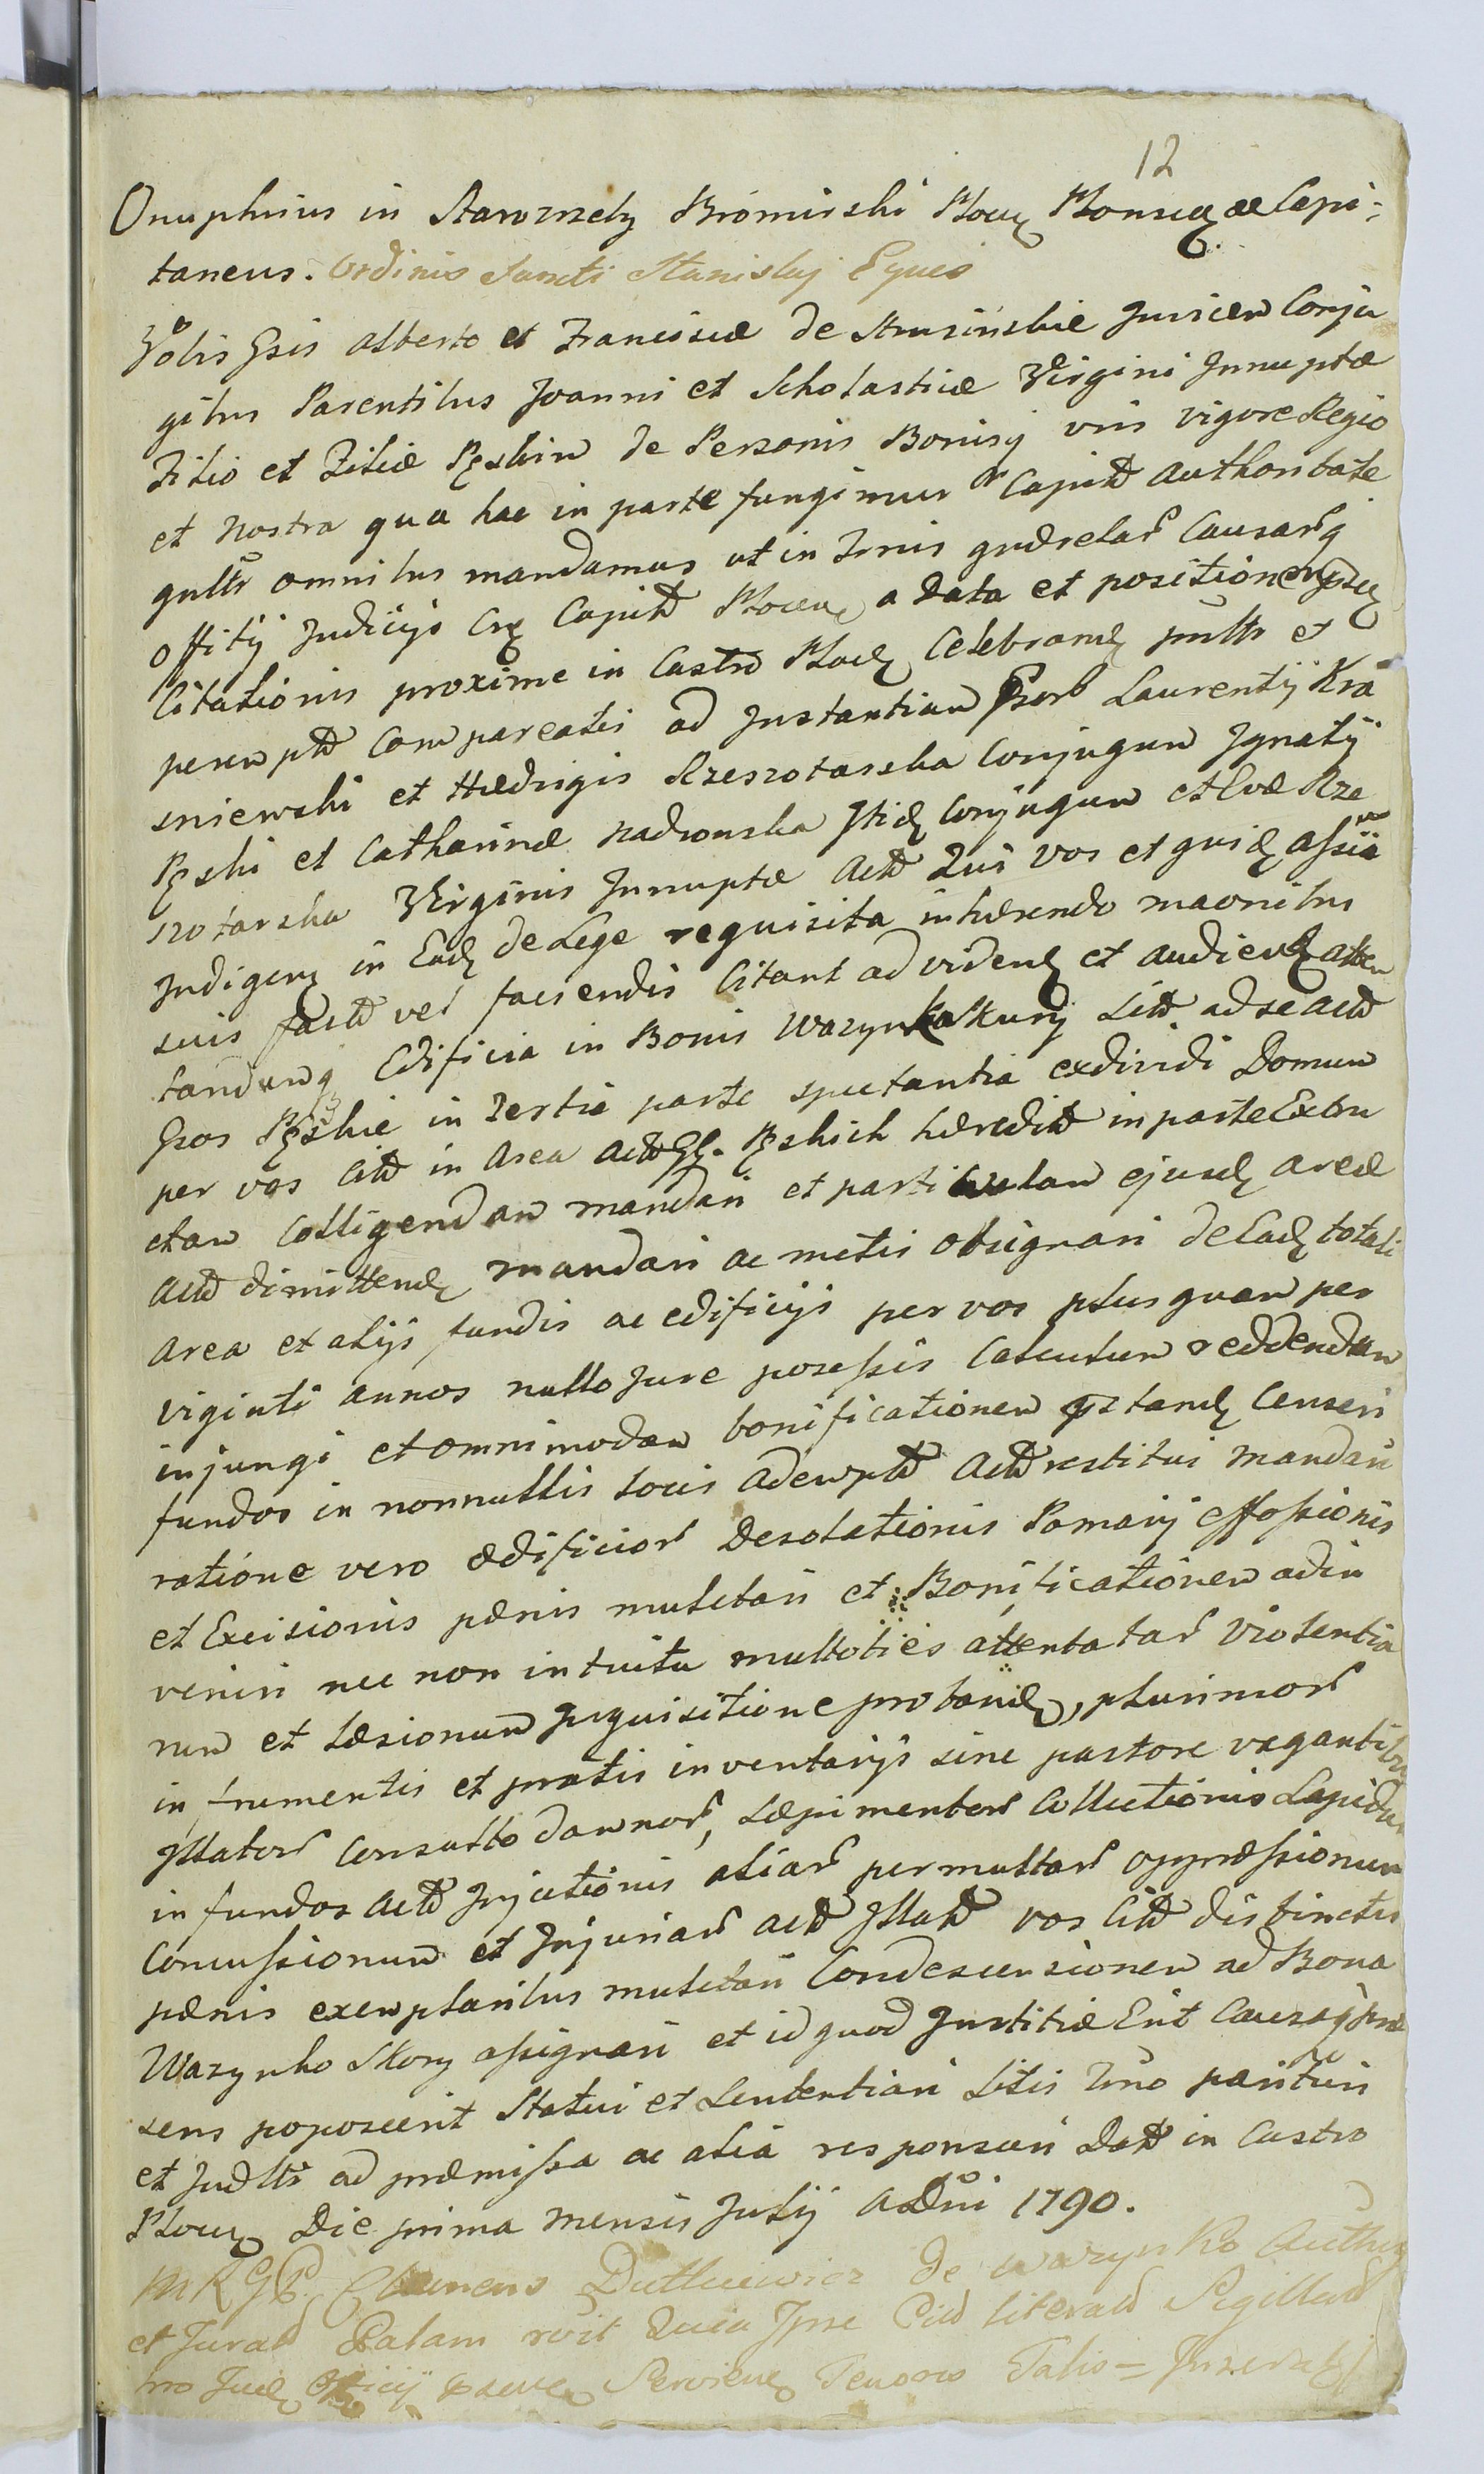 12
Onuphrius in Starorzeby Bromirski Plocen Plonscen ac Capi-
taneus. Ordinis Sancti Stanislaj Eques
Vobis Gsis Alberto et Franciscæ de Strusińskie Juricem Conju
gibus Parentibus Joanni et Scholasticæ Virgini Innuptæ
Filio et Filiæ Pęskim de Personis Bonisq vris vigore Regio
et Nostra qua hac in parte fungimur Capitt Authoritate
omnibus mandamus ut in Trnis querelar Causarq
Offitij Judicijs Capitt Plocen a Data et positione
Citationis proxime in Castro Plocen Celebrand pnltr et
perempt Compareatis ad Instantiam Gsor Laurentij Kra
sniewski et Hedvigis Rzeszotarska Conjugum Ignatij
Pęski et Catharinæ Nadronska Itid Conjugum et Evæ Rze
szotarska Virginis Innuptæ Actt Qui vos et quid
Indigen in Ead de Lege requisita inhærendo maonibus
suis factt vel faciendis Citant ad videnq et audiend atten
tandumq Edificia in Bonis Wazynko Skury Citt ad se Actt
Gsos Pęskie in Tertia parte spectantia exdividi Domum
per vos Citt in Area Actt Gs. Pęskich hæreditt in parte Extru
ctam Colligendam mandari et particulam ejusd areæ
Actt dimittend mandari ac metis obsignari de Ead totali
Area et alijs fundis ac edificijs per vos plusquam per
viginti annos nullo Jure possessis Calculum reddendum
injungi et omnimodam bonificationem pstand Censeri
fundos in nonnullis locis adempt Actt restitui mandari
ratione vero ædificior Desolationis Pomarij effossionis
et Excisionis pænis mulctari et Bonificationem adin
veniri nec non intuitu multoties attentatar violentia
rum et læsionum Inquisitione proband, plurimor
in frumentis et pratis inventarijs sine pastore vagantibus
Illator Consulto damnor, sæpimentor Collectionis Lapidum
in fundos Actt Injectionis aliar permultar oppressionum
Concussionum et Injuriar Actt Illatt vos Citt distinctis
pænis exemplaribus mulctari Condescensionem ad Bona
Wazynko Skory assignari et id quod Justitiæ Erit Causaq præ
sens poposcerit Statui et Sententiari Litis Trno parituri
et Judltr ad præmissa ac alia responsuri Datt in Castro
Plocen Die prima Mensis Julij A Dni 1790.
MRGP. Clemens Dutkiewicz de Wazynko Auth
et Jurat Palam rvit Quia Ipse literam Sigillatt
pro Jud Officij Tenoris Talis =